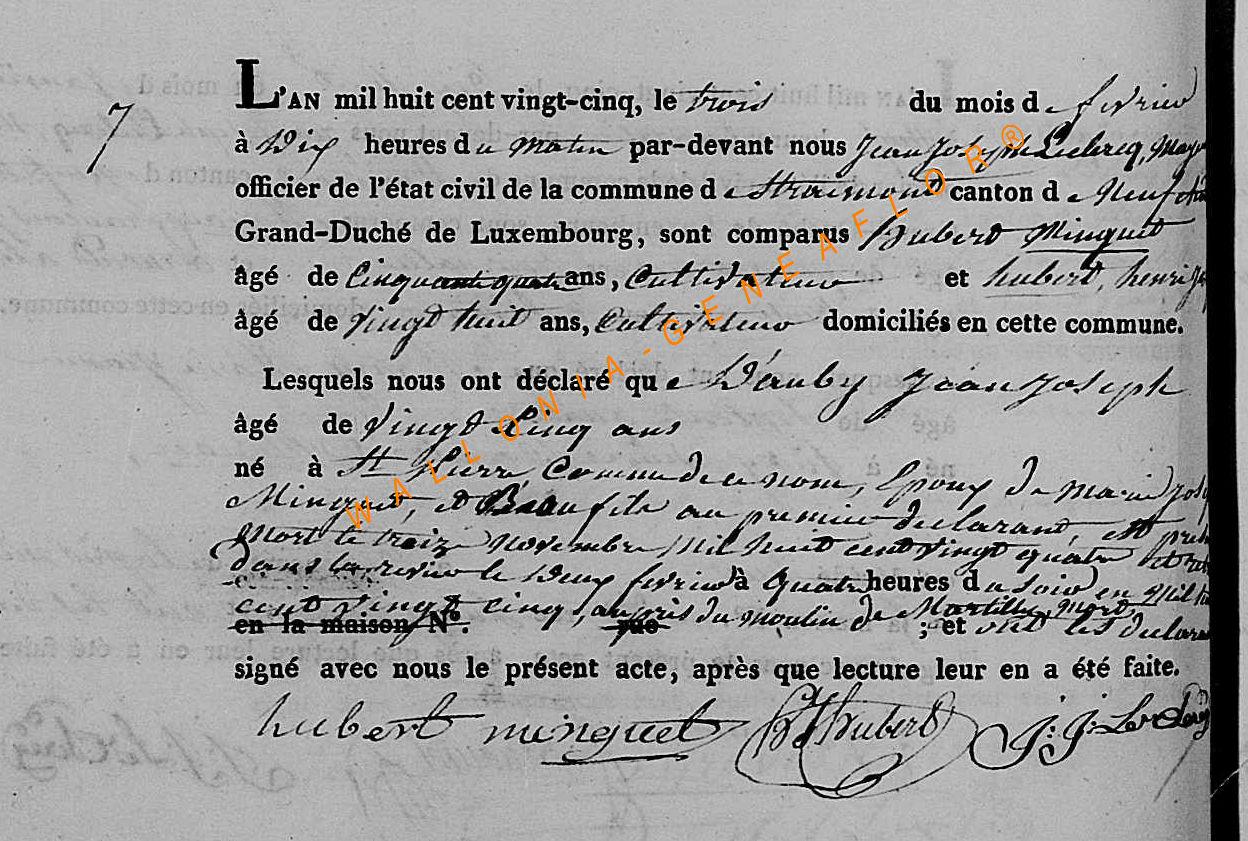 7
L'AN mil huit cent vingt-cinq, le trois du mois de fevrier
à Dix heures du matin par-devant nous Jean Joseph Leclercq, May
officier de l'état civil de la commune de Straimont canton de Neufchâ
Grand-Duché de Luxembourg, sont comparus Hubert Minguet
âgé de Cinquante quatre ans, Cultivateur et hubert, henri
âgé de vingt huit ans, Cultivateur domiciliés en cette commune.
Lesquels nous ont déclaré que Dauby Jean Joseph
âgé de vingt Cinq ans
né à St Pierre, Commune de ce nom, Epoux de marie Jos
Minguet, et Beau fils au premier declarant, est
mort le treize novembre mil huit cent vingt quatre et
dans la riviere le Deux fevrier à quatre heures du soir en mil
cent vingt cinq, aupris du moulin de Martilly, mort
en la maison N°. rue ; et ont les declara
signé avec nous le présent acte, après que lecture leur en a été faite.
hubert minguet hubert J: J: Leclerq
WALLONIA-GENEAFLOR®